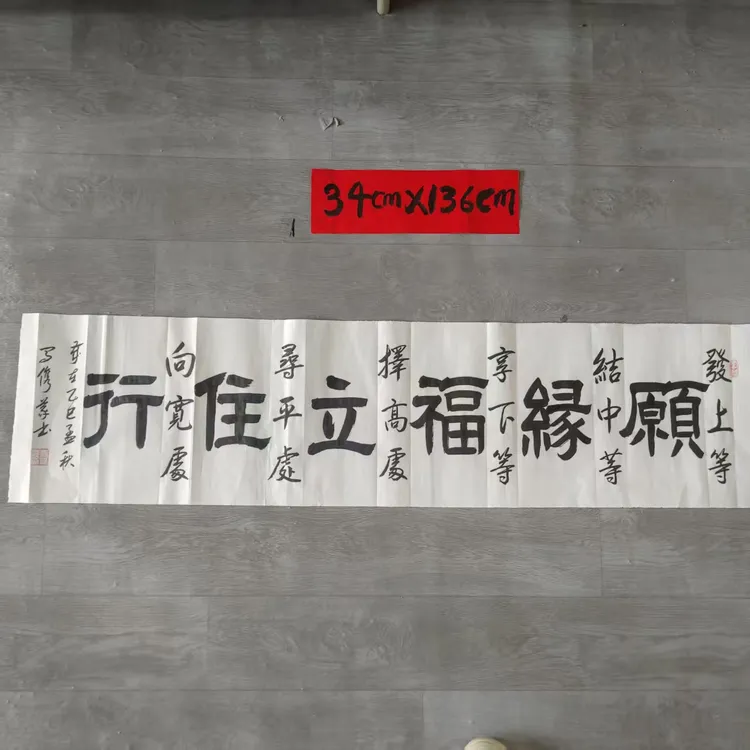 34cmX136cm
發上等
願
結中等
緣
享下等
福
擇高處
立
尋平處
住
向寬處
行
歲在乙巳孟秋